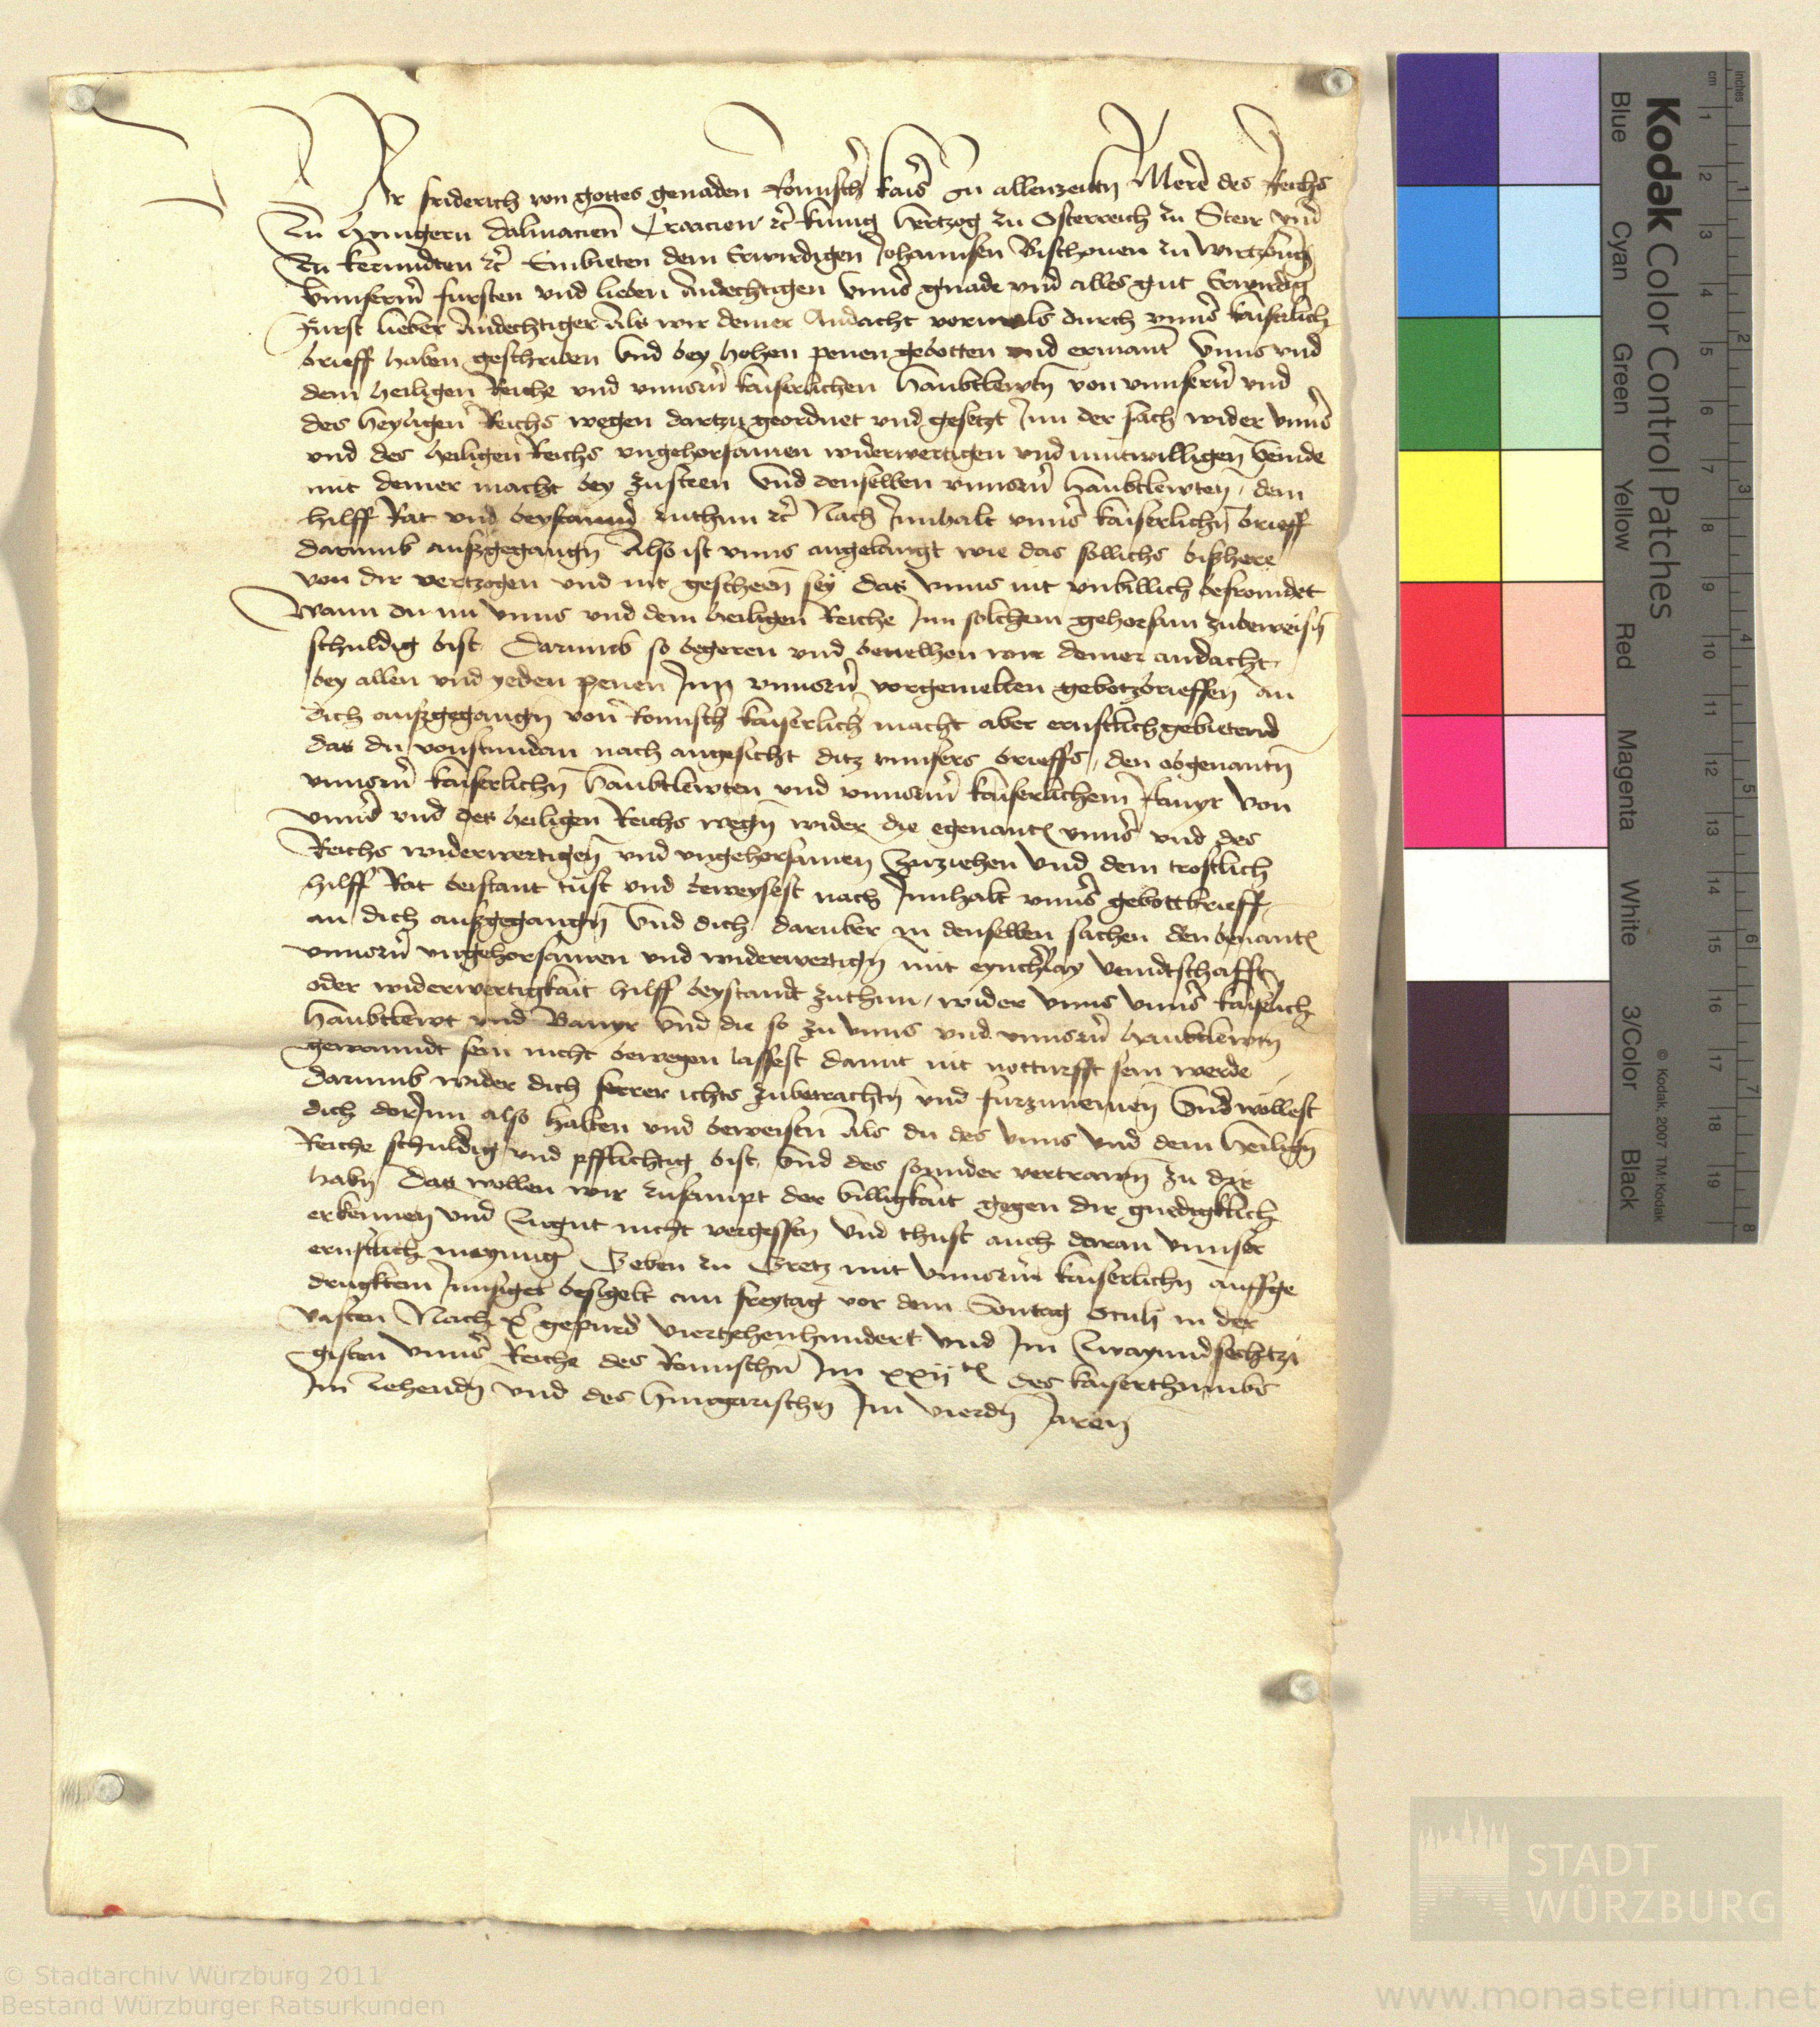 Wir friderich von gottes genaden Romisch kais zu allenzeitn Merer des Reichs
zu Hungern dalmacien Croacien etc kunig Hertzog zu Osterreich zu Steir vnd
zu kernndten etc Embieten dem Erwirdigen Johannsen Bischouen zu Wirtzburg
vnnserm fursten vnd lieben Andechtigen vnns gnade vnd alles gut Erwirdig
Furst lieber Andechtiger Als wir deiner Andacht vormals durch vnns kaiserlich
brieff haben geschriben vnd bey hohen penen gebotten vnd ermant vnns vnd
dem heiligen Reiche vnd vnnsern kaiserlichen Haubtlewtn von vnnsern vnd
des heyligen Reichs wegen dartzu geordnet vnd gesetzt Inn der sach wider vnns
vnd des heiligen Reichs vngehorsamen widerwertigen vnd mutwilligen veinde
mit deiner macht bey zusteen vnd denselben vnnsern haubtlewten dem
hilff Rat vnd beystannd zuthun etc Nach Innhalt vnns kaiserlichn brieff
darumb außgegangn Also ist vnns angelangt wie das sollichs bißhere
von dir vertzogen vnd nit gescheen sey das vnns nit vnbillich befromdet
Wann du nu vnns vnd dem heiligen Reiche Inn solchem gehorsam zubeweisn
schuldig bist Darumb so begeren vnd beuelhen wir deiner andacht
bey allen vnd yeden penen Inn vnnsern vorgemelten gebotzbrieffen an
dich außgegangn von Romisch kaiserlich macht aber ernstlich gebietend
das du vonstundan nach angesicht ditz vnnsers brieffs den obgenantn
vnnsern kaiserlichn haubtlewten vnd vnnserm kaiserlichem Panyr von
vnns vnd des heiligen Reichs wegn wider die egenantn vnns vnd des
Reichs widerwertigen vnd vngehorsamen zuziehen vnd dem trostlich
hilff Rat beistant tust vnd beweysest nach Innhalt vnns gebottbrieff
an dich außgegangn vnd dich daruber in denselben sachen den benantn
vnnsern vngehorsamen vnd widerwertign mit eyncherlay veindtschafft
oder widerwertigkait hilff beystandt zuthun wider vnns vnns kaiserlich
haubtlewt vnd Banyr vnd die so zu vnns vnd vnnsern haubtlewtn
gewanndt sein nicht bewegen lassest damit nit notturfft sein werde
darumb wider dich ferrer ichts zubetrachtn vnd furzunemen vnd wollest
dich dorInn also halten vnd beweisen Als du des vnns vnd dem heiligen
Reiche schuldig vnd pfflichtig bist vnd des sonnder vertrawn zu dir
habn das wollen wir zusampt der billigkait gegen dir gnedigklich
erkennen vnd zugut nicht vergessen vnd thust auch daran vnnser
ernstlich maynung Geben zu Gretz mit vnnserm kaiserlichn auffge
drugktem Innsigel besigelt am freytag vor dem Sontag Oculi in der
vasten Nach x gepurd viertzehenhundert vnd Im zwayundsechtzi
gisten vnns Reiche des Romischn Im xxij des kaiserthumbs
Im zehendn vnd des hungarischn Im vierdn Jaren
Kodak Color Control Patches
Blue Cyan Green Yellow Red Magenta White 3/Color Black
© Kodak, 2007 TM: Kodak
cm 1 2 3 4 5 6 7 8 9 10 11 12 13 14 15 16 17 18 19
inches 1 2 3 4 5 6 7 8
STADT
WÜRZBURG
© Stadtarchiv Würzburg 2011
Bestand Würzburger Ratsurkunden
www.monasterium.net